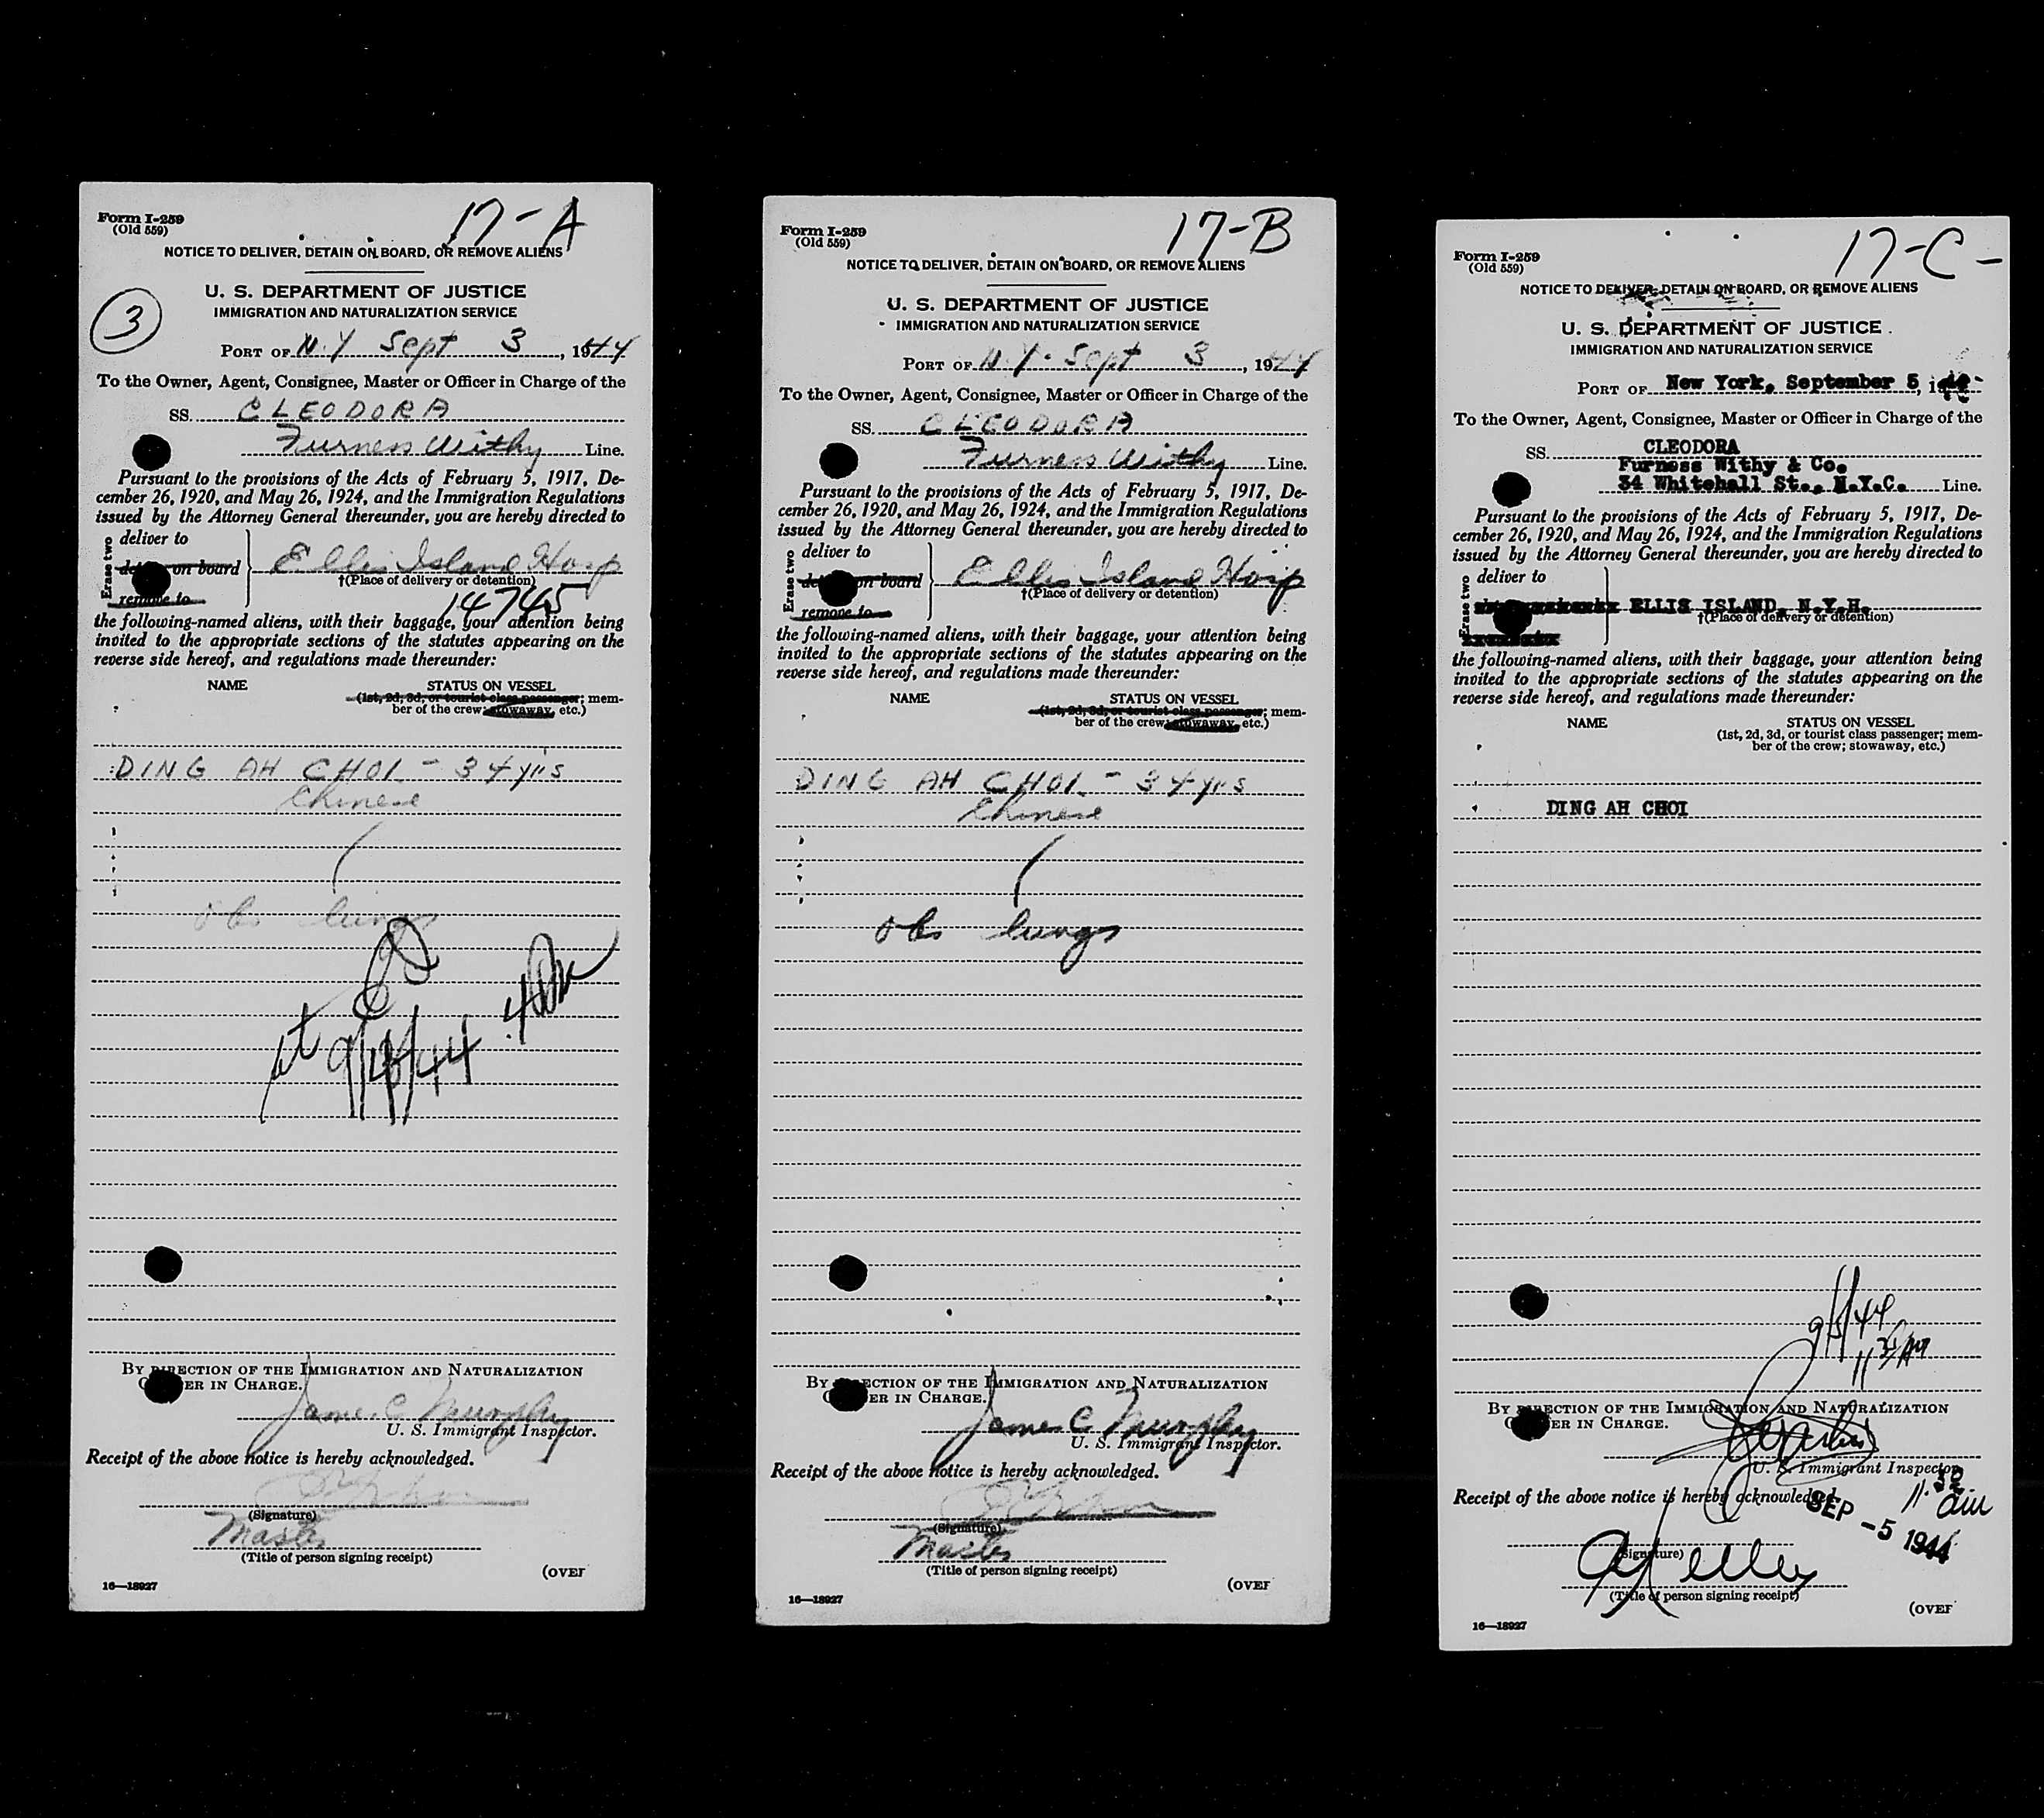 17-A
Form I-259
(Old 559)
NOTICE TO DELIVER, DETAIN ON BOARD, OR REMOVE ALIENS
U. S. DEPARTMENT OF JUSTICE
IMMIGRATION AND NATURALIZATION SERVICE
3
PORT OF N.Y Sept 3, 1944
To the Owner, Agent, Consignee, Master or Officer in Charge of the
SS. CLEODORA
Furness Withy Line.
Pursuant to the provisions of the Acts of February 5, 1917, De-
cember 26, 1920, and May 26, 1924, and the Immigration Regulations
issued by the Attorney General thereunder, you are hereby directed to
Erase two
deliver to
on board
Ellis Island Hosp
†(Place of delivery or detention)
remove to
14745
the following-named aliens, with their baggage, your attention being
invited to the appropriate sections of the statutes appearing on the
reverse side hereof, and regulations made thereunder:
NAME STATUS ON VESSEL
(1st, 2d, 3d, or tourist class passenger; mem-
ber of the crew; stowaway, etc.)
DING AH CHOI - 34 yrs
Chinese
obs lungs
at 9/ /44
BY DIRECTION OF THE IMMIGRATION AND NATURALIZATION
ER IN CHARGE.
James C Murphy
U. S. Immigrant Inspector.
Receipt of the above notice is hereby acknowledged.
(Signature)
Master
(Title of person signing receipt)
(OVER
16—18927
17-B
Form I-259
(Old 559)
NOTICE TO DELIVER, DETAIN ON BOARD, OR REMOVE ALIENS
U. S. DEPARTMENT OF JUSTICE
IMMIGRATION AND NATURALIZATION SERVICE
PORT OF N.Y. Sept 3, 1944
To the Owner, Agent, Consignee, Master or Officer in Charge of the
SS. CLEODORA
Furness Withy Line.
Pursuant to the provisions of the Acts of February 5, 1917, De-
cember 26, 1920, and May 26, 1924, and the Immigration Regulations
issued by the Attorney General thereunder, you are hereby directed to
Erase two
deliver to
on board
Ellis Island Hosp
†(Place of delivery or detention)
remove to
the following-named aliens, with their baggage, your attention being
invited to the appropriate sections of the statutes appearing on the
reverse side hereof, and regulations made thereunder:
NAME STATUS ON VESSEL
(1st, 2d, 3d, or tourist class passenger; mem-
ber of the crew; stowaway, etc.)
DING AH CHOI - 34 yrs
Chinese
obs lungs
BY DIRECTION OF THE IMMIGRATION AND NATURALIZATION
ER IN CHARGE.
James C Murphy
U. S. Immigrant Inspector.
Receipt of the above notice is hereby acknowledged.
(Signature)
Master
(Title of person signing receipt)
(OVER
16—18927
17-C-
Form I-259
(Old 559)
NOTICE TO DELIVER, DETAIN ON BOARD, OR REMOVE ALIENS
U. S. DEPARTMENT OF JUSTICE
IMMIGRATION AND NATURALIZATION SERVICE
PORT OF New York, September 5,
To the Owner, Agent, Consignee, Master or Officer in Charge of the
SS. CLEODORA
Furness Withy & Co.
34 Whitehall St., N.Y.C. Line.
Pursuant to the provisions of the Acts of February 5, 1917, De-
cember 26, 1920, and May 26, 1924, and the Immigration Regulations
issued by the Attorney General thereunder, you are hereby directed to
Erase two
deliver to
ELLIS ISLAND, N.Y.H.
†(Place of delivery or detention)
the following-named aliens, with their baggage, your attention being
invited to the appropriate sections of the statutes appearing on the
reverse side hereof, and regulations made thereunder:
NAME STATUS ON VESSEL
(1st, 2d, 3d, or tourist class passenger; mem-
ber of the crew; stowaway, etc.)
DING AH CHOI
9/5/44
BY DIRECTION OF THE IMMIGRATION AND NATURALIZATION
ER IN CHARGE.
U. S. Immigrant Inspector.
11.30 am
Receipt of the above notice is hereby acknowledged.
SEP -5 1944
(Signature)
(Title of person signing receipt)
(OVER
16—18927